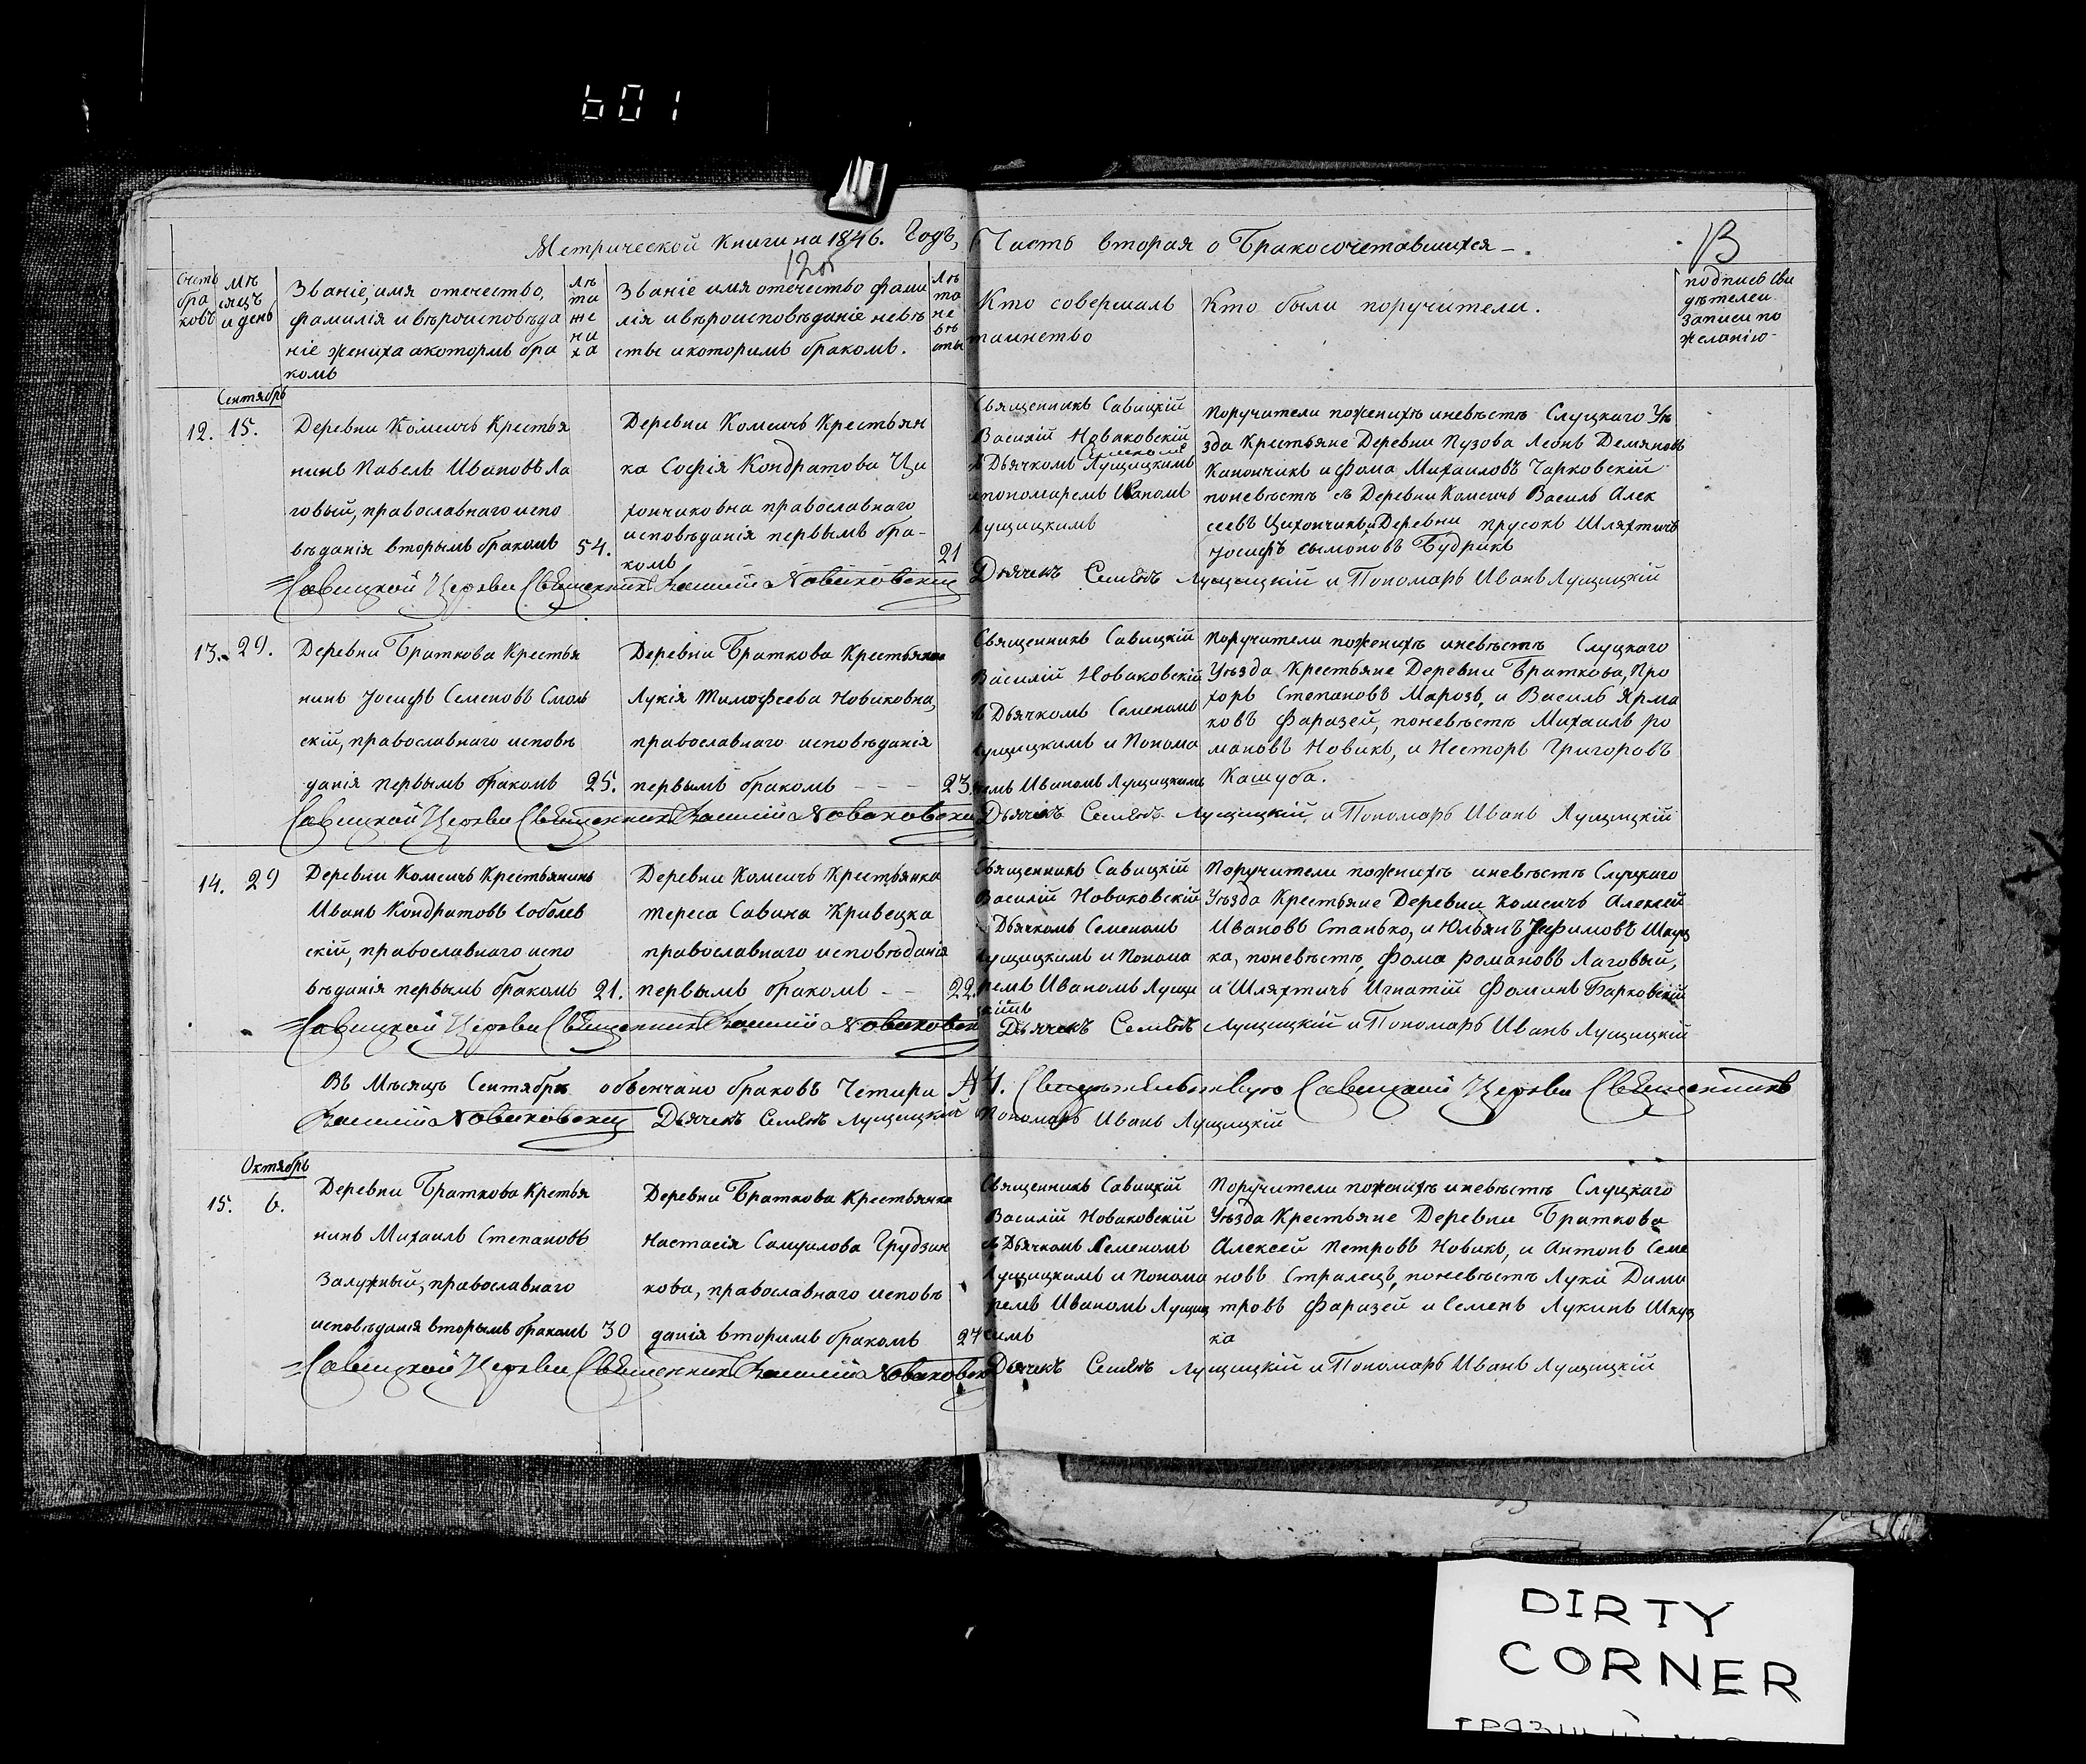 601
Метрической книги на 1846. Годъ, Часть вторая о Бракосочетавшихся
12об
13
Счетъ браковъ
Мѣсяцъ и день
Званіе, имя отечество,
фамилія и вѣроисповѣда
ніе жениха и которымъ бра
комъ
Лѣта жениха
Званіе имя отечество фами
лія и вѣроисповѣданіе невѣ
сты и которимъ бракомъ.
Лѣта невѣсты
Кто совершалъ
таинство
Кто были поручители.
подписъ сви
дѣтелей
записи по
желанію
Сентябрь
12. 15.
Деревни Комсичъ Крестья
нинъ Павелъ Ивановъ Ла
говый, православнаго испо
вѣданія вторымъ бракомъ 54.
Деревни Комсичъ Крестьян
ка Софія Кондратова Ци
хончиковна православнаго
исповѣданія первымъ бра-
комъ 21
Священникъ Савицкій
Василій Новаковскій
Дьячкомъ Лущицкимъ
пономаремъ Иваномъ
Лущицкимъ
Поручители по женихѣ и невѣстѣ Слуцкаго Уѣ
зда Крестьяне Деревни Пузова Леонъ Демяновъ
Канончикъ и Фома Михаиловъ Чарковскій
по невѣстѣ съ Деревни Комсичъ Василь Алек
сеевъ Цихончикъ и Деревни Прусокъ Шляхтичъ
Іосифъ Сымоновъ Будрикъ
Савицкой Церкви Священникъ Василій Новаковскій
Дьячекъ Семенъ Лущицкій и Пономарь Иванъ Лущицкій
13. 29.
Деревни Браткова Крестья
нинъ Іосифъ Семеновъ Смоль
скій, православнаго исповѣ
данія первымъ бракомъ 25.
Деревни Браткова Крестьянка
Лукія Тимофеева Новиковна,
православнаго исповѣданія
первымъ бракомъ - - - 23.
Священникъ Савицкій
Василій Новаковскій
съ Дьячкомъ Семеномъ
Лущицкимъ и Понома
ремъ Иваномъ Лущицкимъ
Поручители по женихѣ и невѣстѣ Слуцкаго
Уѣзда Крестьяне Деревни Браткова, Про
хоръ Степановъ Марозъ, и Василь Ярма
ковъ Фаразей, по невѣстѣ Михаилъ Ро
мановъ Новикъ, и Несторъ Григоровъ
Кашуба.
Савицкой Церкви Священникъ Василій Новаковскій
Дьячекъ Семенъ Лущицкій и Пономарь Иванъ Лущицкій
14. 29
Деревни Комсичъ Крестьянинъ
Иванъ Кондратовъ Соболев
скій, православнаго испо
вѣданія первымъ бракомъ 21.
Деревни Комсичъ Крестьянка
Тереса Савина Кривецка
православнаго исповѣданія
первымъ бракомъ - - 22.
Священникъ Савицкій
Василій Новаковскій
Дьячкомъ Семеномъ
Лущицкимъ и Понома
ремъ Иваномъ Лущи
цкимъ
Поручители по женихѣ и невѣстѣ Слуцкаго
Уѣзда Крестьяне Деревни Комсичъ Алексей
Ивановъ Станько, и Юльянъ Яфимовъ Шкуд
ка, по невѣстѣ, Фома Романовъ Лаговый,
и Шляхтичъ Игнатій Фоминъ Барковскій
Савицкой Церкви Священникъ Василій Новаковскій
Дьячекъ Семенъ Лущицкій и Пономарь Иванъ Лущицкій
Въ Мѣсяцѣ Сентябрѣ обвенчано браковъ Четири № 4. Свидѣтельствую Савицкой Церкви Священникъ
Василій Новаковскій Дьячекъ Семенъ Лущицкій Пономарь Иванъ Лущицкій
Октябрь
15. 6.
Деревни Браткова Кретья
нинъ Михаилъ Степановъ
Залужный, православнаго
исповѣданія вторымъ бракомъ 30
Деревни Браткова Крестьянка
Настасія Самуилова Грудзин
кова, православнаго исповѣ
данія вторимъ бракомъ 27
Священникъ Савицкій
Василій Новаковскій
съ Дьячкомъ Семеномъ
Лущицкимъ и Понома
ремъ Иваномъ Лущиц
кимъ
Поручители по женихѣ и невѣстѣ Слуцкаго
Уѣзда Крестьяне Деревни Браткова
Алексей Петровъ Новикъ, и Антонъ Семе
новъ Стралецъ, по невѣстѣ Лука Дими
тровъ Фаразей и Семенъ Лукинъ Шкуд
ка
Савицкой Церкви Священникъ Василій Новаковскій
Дьячекъ Семенъ Лущицкій и Пономарь Иванъ Лущицкій
DIRTY
CORNER